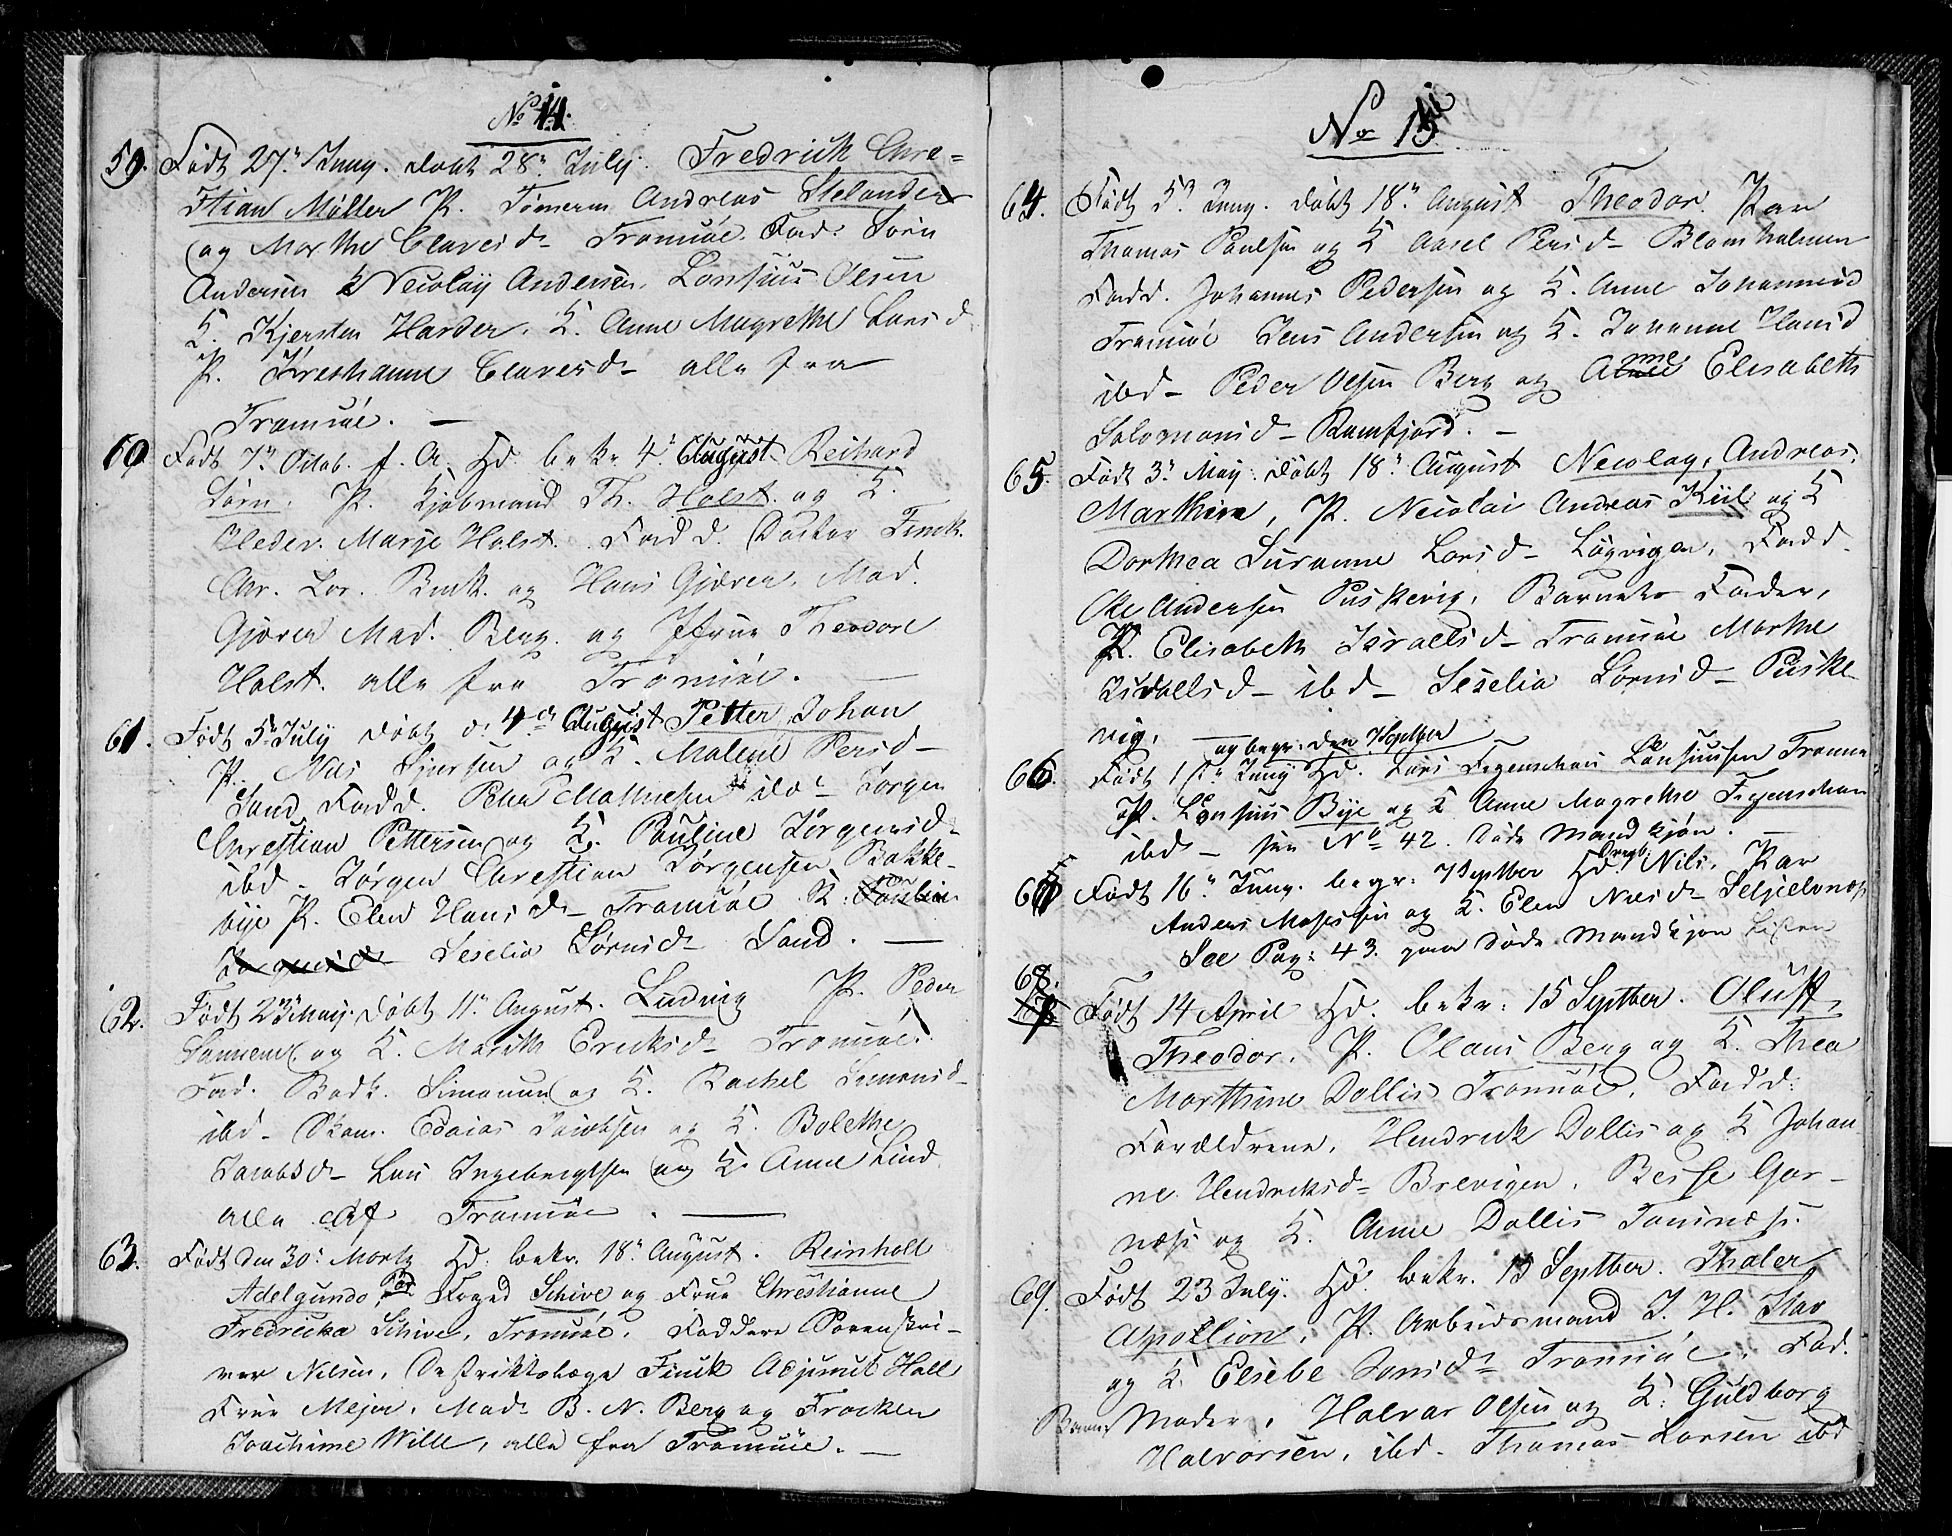 No 14.
59. Født 27n Juny. døbt 28n July. Fredrick Chre=
stian Møller P. Tømerm Andreas Stelander
og Marthe Clausd- Tromsöe. Fad: Sørn
Andersen & Nicolay Andersen, Lonsius Olsen
K. Kjersten Harder. K. Anne Magrethe Larsd
P. Kresthanne Clausd- alle fra
Tromsöe. —
60 Født 7n Octob. f. A. Hd. bekr 4n August Reihard
Sørn. P. Kjøbmand Th. Holst. og K.
Heder. Marje Holst. Fadd. Doctor Finck.
Chr. Lor. Buck. og Hans Gjæver. Mad.
Gjæver Mad. Berg. og Jfrue Theodore
Holst. alle fra Tromsöe. —
61. Født 5n July døbt d. 4de August Petter Johan
P. Nils Siversen og K. Malene Persd-
Sand Fadd. Peter Mathiesen ibd- Jørgen
Chrestian Pettersen og K. Pauline Jørgensd-
ibd- Jørgen Chrestian Jørgensen Bakke-
bye P. Elen Hansd- Tromsöe K.
Seselia Sørnsd- Sand. —
62. Født 23n May. døbt 11n August. Ludvig P. Peder
Sannem og K. Marith Ericksd- Tromsöe.
Fad. Badk. Simonsen og K. Rachel Simonsd-
ibd- Skom. Edaias Jacobsen og K. Bolethe
Jacobsd- Lars Ingebrigtsen og K. Anne Lind
alle af Tromsöe. —
63. Født den 30n Martz Hd. bekr. 18n August. Reinholt
Adelgunda, Foged Schive og Frue Chresthanne
Fredricka Schive, Tromsöe. Faddere Sorenskri-
ver Nilsen, Destriktslæge Finck Adjunct Hall
Frue Mejer. Mad- B. N. Berg og Frøcken
Joachime Wille, alle fra Tromsöe. —
No 15
64. Født 5n Juny. døbt 18n August Theodor. Par
Thomas Paulsen og K Aasel Persd- Blomholmen
Fadd. Johannes Pedersen og K. Anne Johannisd
Tromsöe Jens Andersen og K. Johanne Hansd
ibd- Peder Olsen Berg og Anne Elisabeth
Solomonsd- Ramfjord. —
65. Født 3n May. døbt 18n August Nicolay. Andreas.
Marthin, P. Nicolai Andreas Kiil og K
Dorthea Susanne Larsd- Løgvigen, Fadd.
Ole Andersen Puskevig, Barnets Fader,
P. Elisabeth Israelsd- Tromsöe Marthe
Israelsd- ibd- Seselia Larsd- Puske
vig. — og begr: den 7 Septber —
66. Født 1n Juny Hd. Lars Figenschau Lonsiussen Tromsø
P. Lonsius Bye og K Anne Magrethe Figenschau
ibd- see No 42. døde Mandkjøn. —
67 Født 16n Juny. begr: 7 Septber Hd. Drengb. Nils. Par
Anders Mosessen og K. Elen Nilsd- Seljelvnæss
See Pag: 43. paa døde Mandkjøn Listen
68. Født 14 April Hd. bekr: 15 Septber. Oluff,
Theodor. P. Olaus Berg og K. Thea
Marthine Dollis Tromsöe. Fadd:
Forældrene, Hendrick Dollis og K Johan
ne Hendricksd- Brevigen. Besse Gor-
næss og K. Anne Dollis Tonsnæss.
69. Født 23 July. Hd. bekr. 15 Septber. Thaler
Apollion. P. Arbeidsmand J. H. Star
og K. Elsebe Jonsd- Tromsöe. Fad.
Barns Moder. Halvar Olsen og K. Guldborg
Halvorsen. ibd. Thomas Larsen ibd